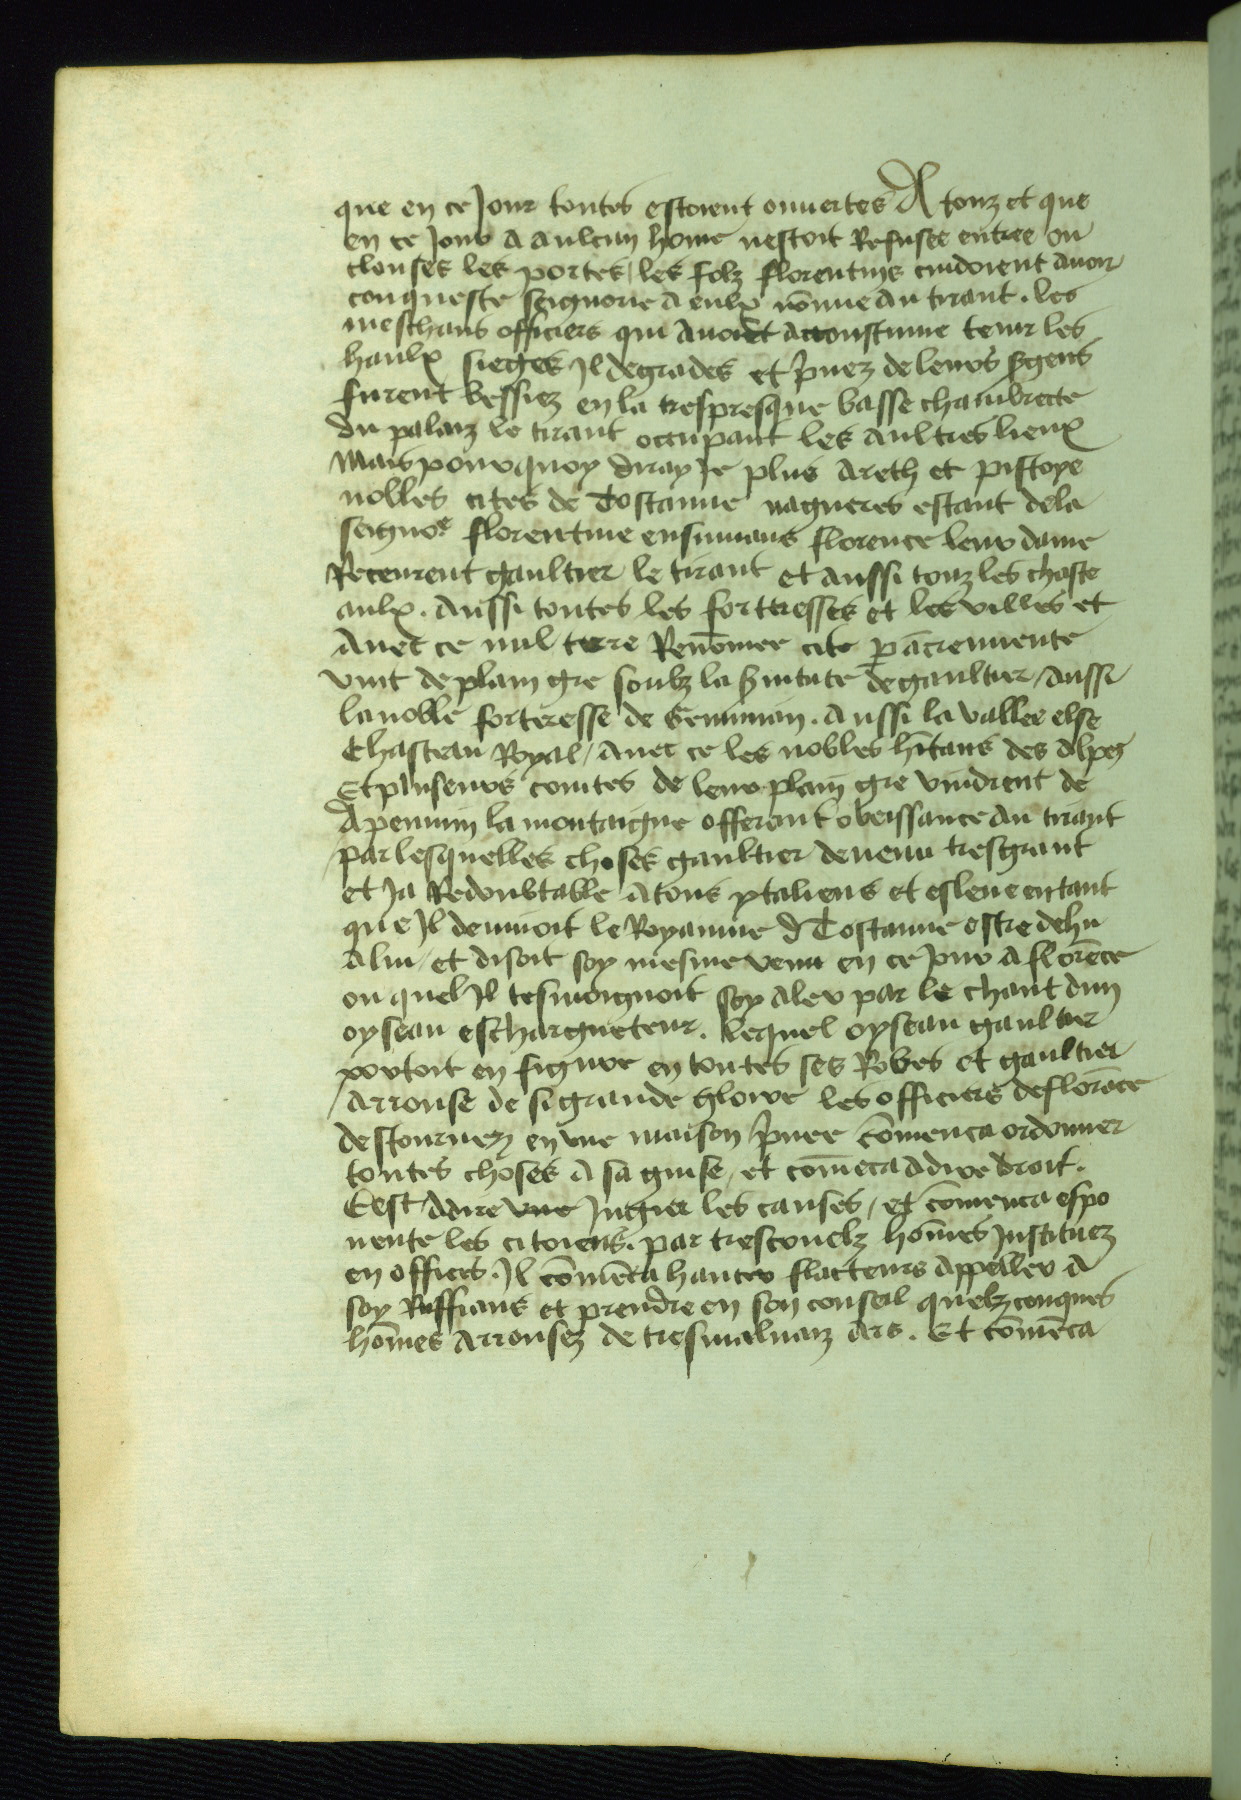 que en ce Jour toutes estoient ouuertes A touz et que
en ce Jour a aulcun home nestoit Refusee entree ou
clouses les portes / les folz florentins cuidoient auoir
conqueste seignorie a eulx nōmie du tirant. les
meschans officiers qui auoiēt accoustume tenir les
haulx sieges Jl degrades et p̄uez de leurs s̄gens
furent lessiez en la trespresque basse chambrecte
du palaiz le tirant occupant les aultres lieux
Mais pourquoy diray Je plus areth et pistoye
nobles cites de Tostanne nagueres estant de la
seignoe florentine ensuiuans florence leur dame
Receurent gaultier le tirant et aussi touz les chaste
aulx. aussi toutes les forteresses et les villes et
Auec ce nul terre Renōmee cite
vint de plain gre soubz la s̄uitute de gaultier / aussi
la noble forteresse de Geminian. aussi la vallee else
Chasteau Royal / auec ce les nobles h̄itans des alpes
Et pluseurs contes de leur plain gre vindrent de
Apennin la montaigne offerant obeissance au tirant
par lesquelles choses gaultier deuenu tresgrant
et Ja Redoubtable a tous ytaliens et esleue en tant
que Jl deuinoit le Royaume d Tostanne estre dehu
a lui / et disoit soy mesme venu en ce Jour a florēce
ou quel Jl tesmoignoit soy aler par le chant dun
oyseau eschargueteur. lequel oyseau gaultier
portoit en figure en toutes ses Robes et gaultier
Arrouse de si grande glore les officiers de florāce
destournez en vne maison p̄uee cōmenca ordonner
toutes choses a sa guise / et comēca a dire droit.
Cest adire vne Jugier les causes / et cōmenca espo
uente les citoiens. par trescruelz hōmes Jnstituez
en offices. Jl cōmēca hanter flacteurs appeller a
soy Ruffians et prendre en son conseil quelzconques
hōmes arrousez de tresmaluaiz ars. Et cōmēca